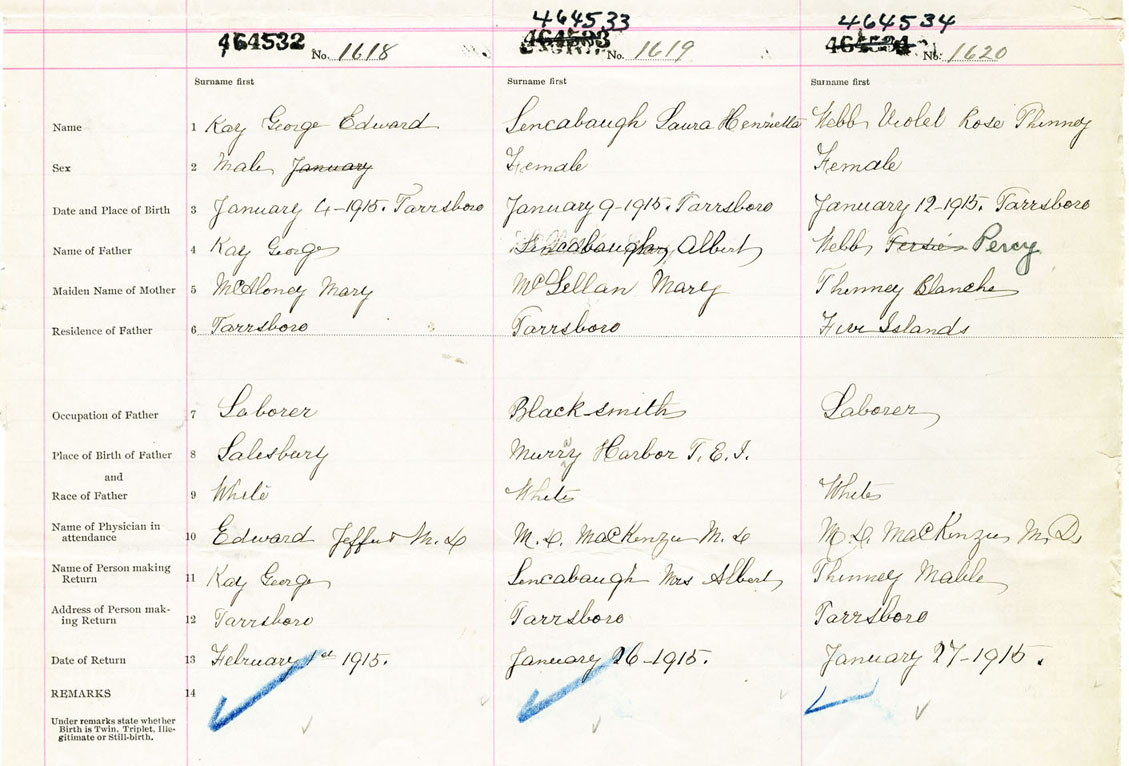 464533 464534
464532 No. 1618 464533 No. 1619 464534 No. 1620
Surname first Surname first Surname first
Name 1 Kay George Edward Lencabaugh Laura Henrietta Webb Violet Rose Phinney
Sex 2 Male January Female Female
Date and Place of Birth 3 January 4-1915. Parrsboro January 9-1915. Parrsboro January 12-1915. Parrsboro
Name of Father 4 Kay George Lencabaugh, Albert Webb Persie Percy
Maiden Name of Mother 5 McAloney Mary McLellan Mary Phinney Blanche
Residence of Father 6 Parrsboro Parrsboro Five Islands
Occupation of Father 7 Laborer Blacksmith Laborer
Place of Birth of Father 8 Salesbury Murray Harbor P. E. I.
and
Race of Father 9 White White White
Name of Physician in
attendance 10 Edward M. D M. D. MacKenzie M. D M. D. MacKenzie M. D.
Name of Person making
Return 11 Kay George Lencabaugh Mrs Albert Phinney Mable
Address of Person mak-
ing Return 12 Parrsboro Parrsboro Parrsboro
Date of Return 13 February 1st 1915. January 26-1915. January 27-1915.
REMARKS 14
Under remarks state whether
Birth is Twin, Triplet, Ille-
gitimate or Still-birth.